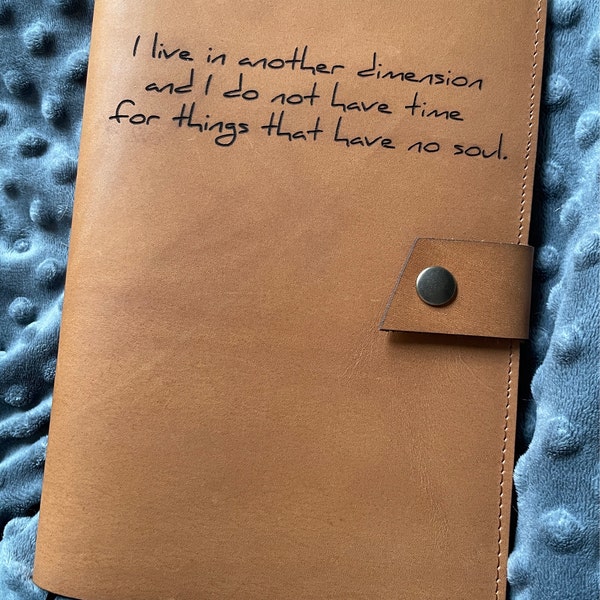 I live in another dimension
and I do not have time
for things that have no soul.